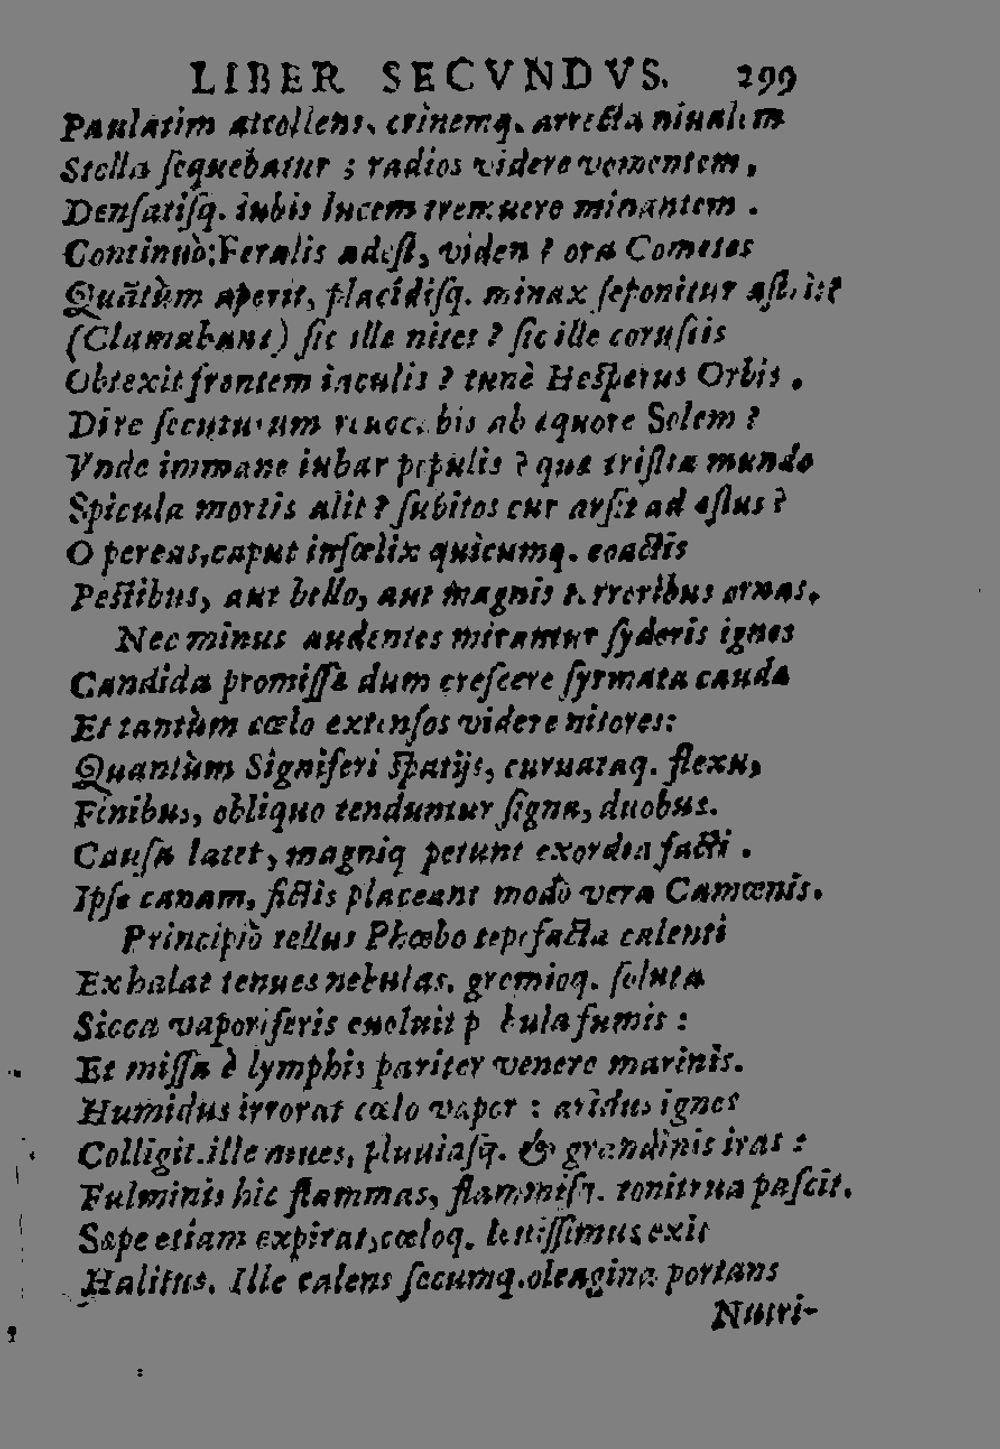 LIBER SECVNDVS. 299
Paulatim attollens, crinemq. arrecta niualem
Stella sequebatur ; radios videre vomentem,
Densatisq. iubis lucem tremuere minantem .
Continuò: Feralis adest, viden ? ora Cometes
Quãtùm aperit, placidisq. minax seponitur astris?
(Clamabant) sic ille nitet ? sic ille coruscis
Obtexit frontem iaculis ? tunè Hesperus Orbis .
Dire secuturum reuocabis ab æquore Solem ?
Vnde immane iubar populis ? quæ tristia mundo
Spicula mortis alit ? subitos cur arsit ad æstus ?
O pereas, caput infœlix quicumq. coactis
Pestibus, aut bello, aut magnis terroribus ornas.
Nec minus audentes mirantur syderis ignes
Candida promissæ dum crescere syrmata caudæ
Et tantùm cœlo extensos videre nitores:
Quantùm Signiferi spatijs, curuataq. flexu,
Finibus, obliquo tenduntur signa, duobus.
Causa latet, magniq petunt exordia facti .
Ipse canam, fictis placeant modò vera Camœnis.
Principiò tellus Phœbo tepefacta calenti
Exhalat tenues nebulas, gremioq. soluta
Sicca vaporiferis euoluit pabula fumis :
Et missa è lymphis pariter venere marinis.
Humidus irrorat cœlo vapor : aridus ignes
Colligit. ille niues, pluuiasq. & grandinis iras :
Fulminis hic flammas, flammisq. tonitrua pascit.
Sæpe etiam expirat, cœloq. lentissimus exit
Halitus. Ille calens secumq. oleagina portans
Nutri-